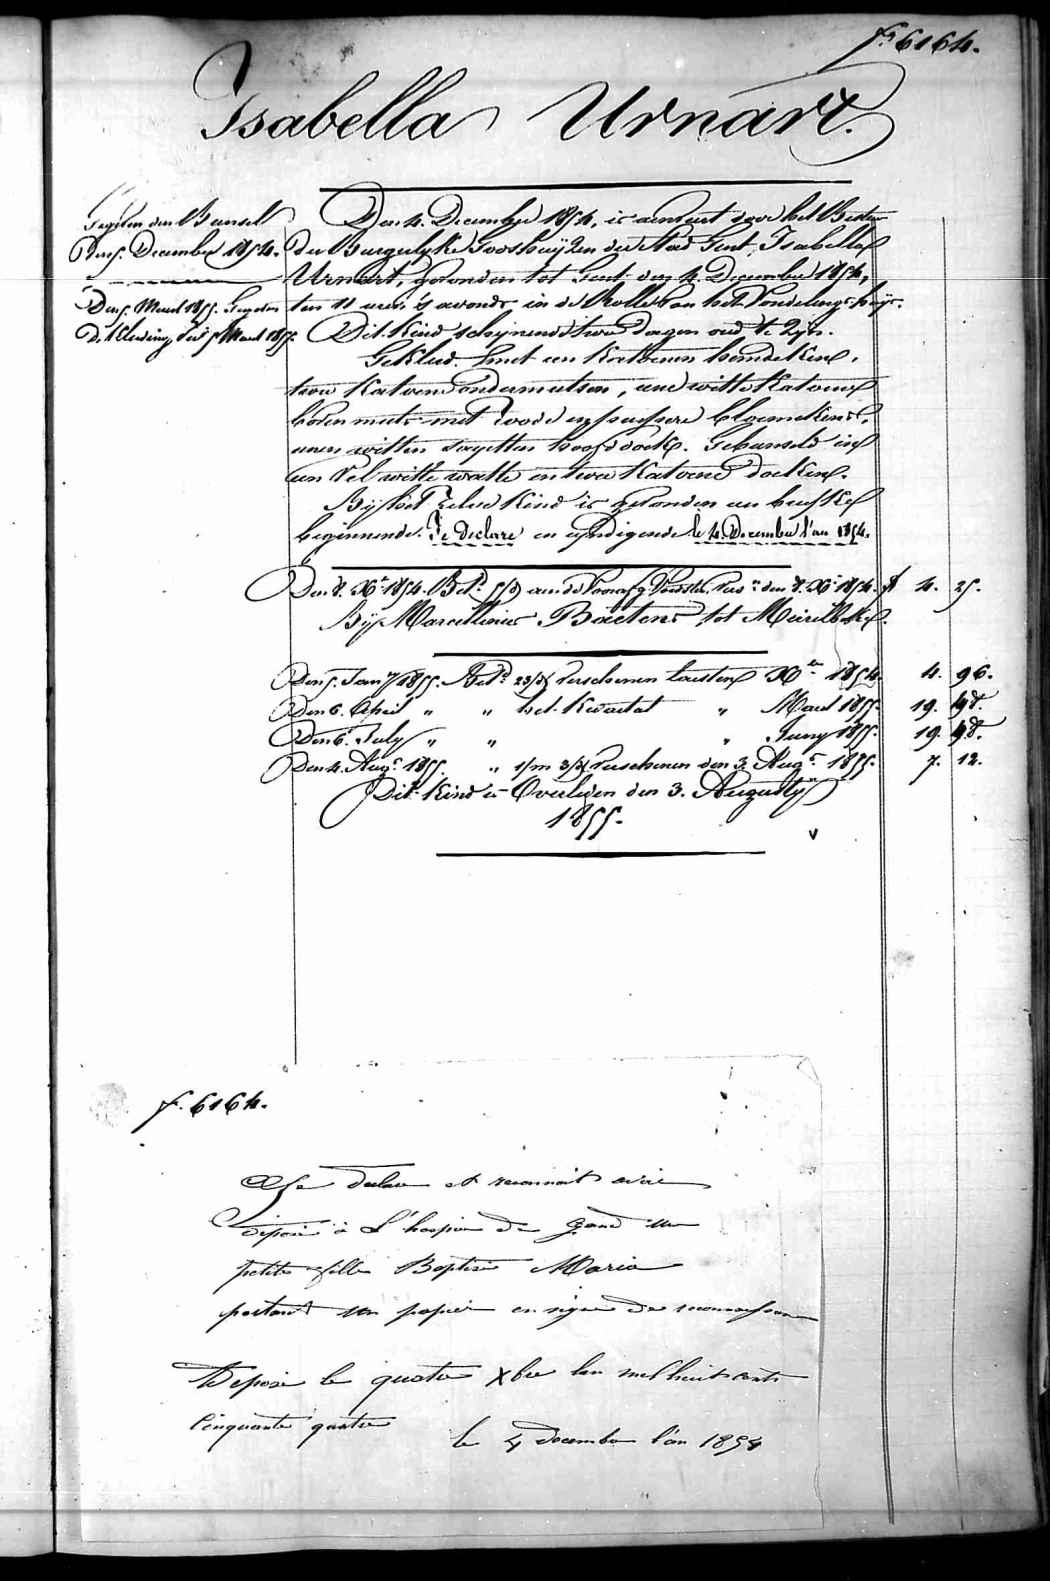 fº 6164.
Isabella Urnart.
Gegeven den Bunsel
Den 5. December 1854.
Den 5. Maert 1855. Gegeven
De Kleeding ver 5 Maert 1855.
Den 4. December 1854, is aenveert door het Bestier
der Burgerlyke Godshuyzen der Stad Gent, Isabella
Urnart, gevonden tot Gent den 4. December 1854,
ten 11 uren 's avonds in de Rolle van het Vondelingshuys.
Dit Kind schynende twee dagen oud te zyn.
Gekleed met een Katoenen hemdeken,
twee Katoene ondermutsen, eene witte Katoene
boven muts met roode en purpere bloemekens,
eenen witten sayetten hoofddoek. Gebunseld in
een vel witte watte en twee Katoene doeken.
By het zelve Kind is gevonden een briefke
beginnende: Je declare en eyndigende le 4 Decembre l'an 1854.
Den 8. Xbr 1854. Betd 5/8 aen de Voorafg. Voedster, Vers. den 8. Xbr 1854. ff 4. 25.
By Marcellinus Baetens, tot Meirelbeke.
Den 5. Jany 1855. Betd 23/31 verschenen laesten Xbre 1854. 4. 96.
Den 6. April " " het Kwartael " Maert 1855. 19. 98.
Den 6. July " " " Juny 1855. 19. 98.
Den 4. Augt 1855. " 1/m 3/31 verschenen den 3. Augt 1855. 7. 12.
Dit Kind is Overleden den 3. Augusty
1855.
f. 6164.
Je declare et reconnait avoir
deposé à L'hospice de Gand une
petite fille Baptisé Maria
portant un papier en signe de reconnaissance
Deposé le quatre Xbre l'an mil huit cents
Cinquante quatre
le 4 decembre l'an 1854